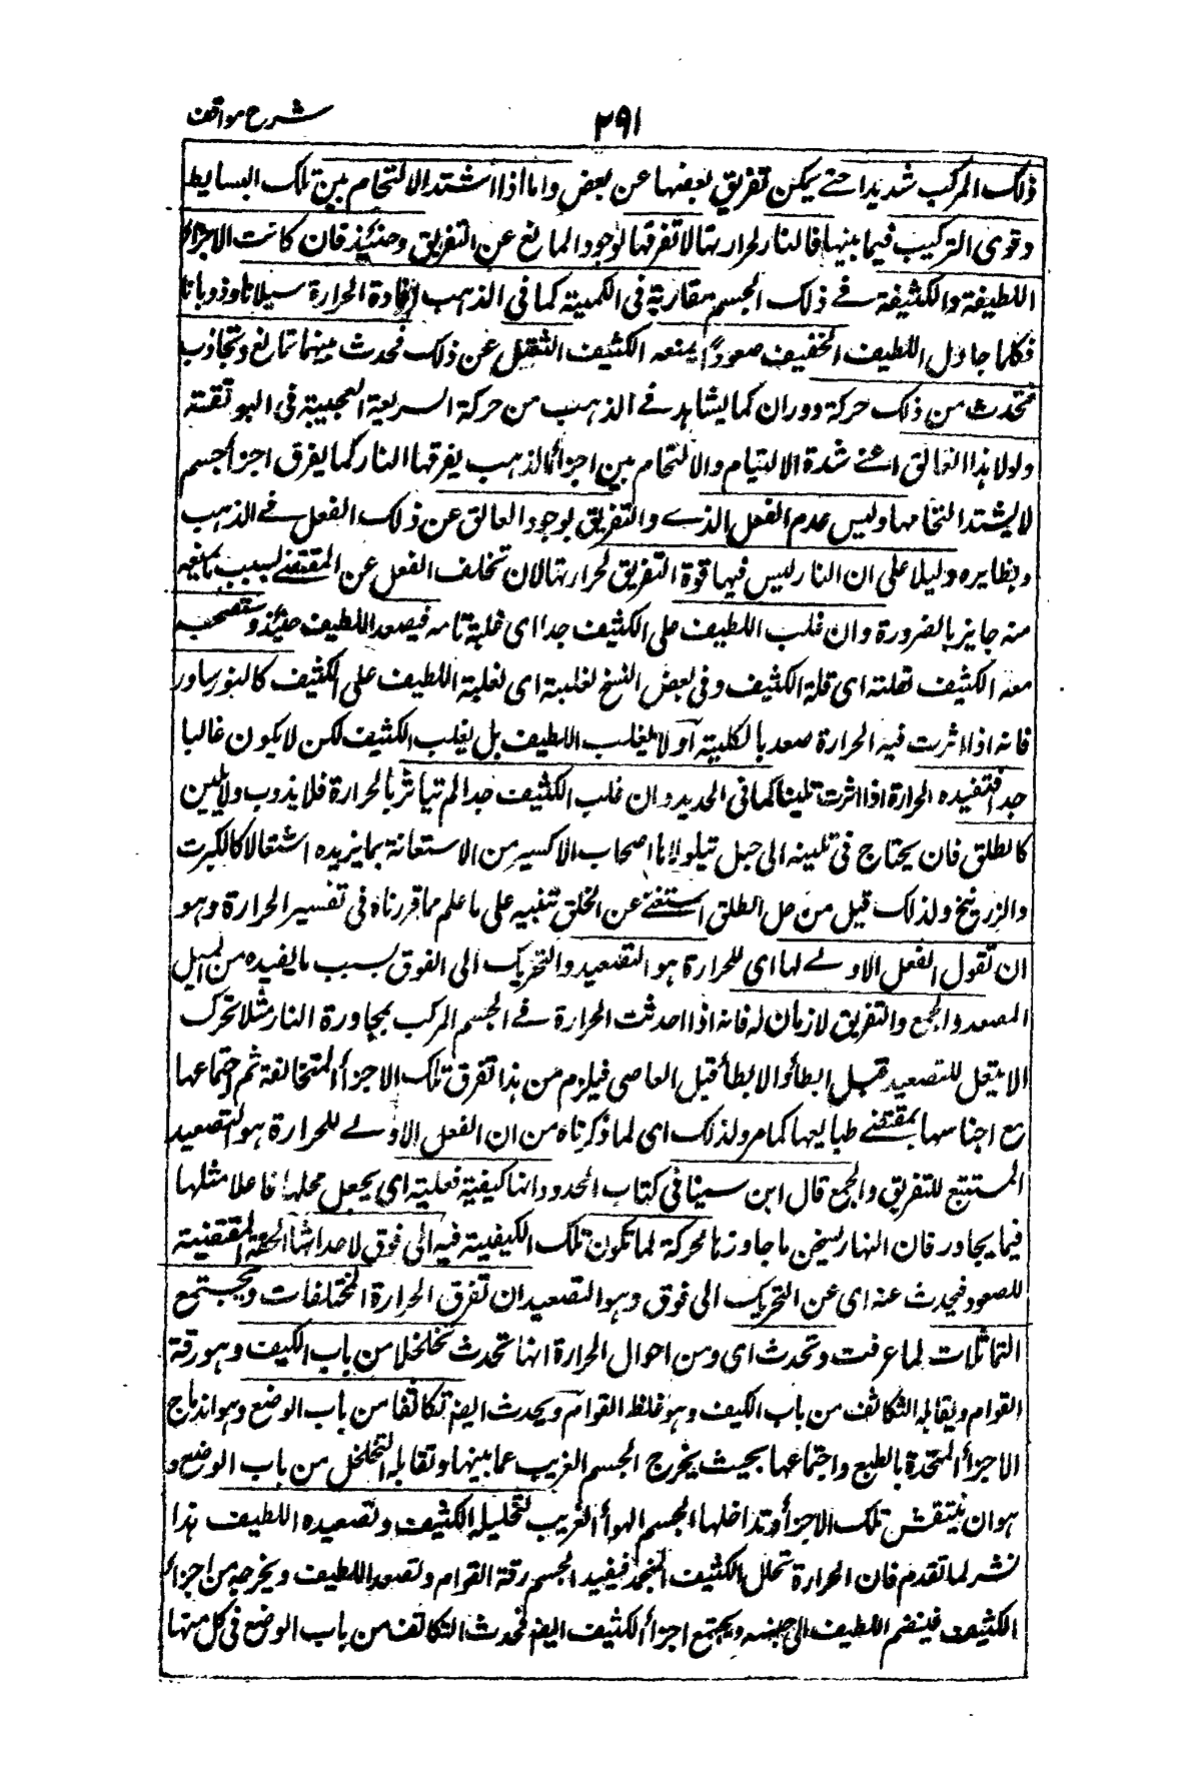 شرح مواقف
٢٩١
ذلك المركب شديدا حتے يمكن تفريق بعضها عن بعض واما اذا اشتد الالتحام بين تلك البسايط
وقوى التركيب فيما بينها فالنار لحرارتها لا تفرقها لوجود المانع عن التفريق وحنئيذ فان كانت الاجزاء
اللطيفة والكثيفة فے ذلك الجسم متقاربة فى الكمية كما فى الذهب افادة الحرارة سيلانا وذوبانا
فكلما حاول اللطيف الخفيف صعودًا يمنعه الكثيف الثقيل عن ذلك فحدث بينهما تمانع وتجاذب
فتحدث من ذلك حركة دوران كما يشاهد فے الذهب من حركة السريعة العجيبة فى البوتقة
ولولا هذا العائق اعنے شدة الالتيام والالتحام بين اجزاء الذهب يفرقها النار كما يفرق اجزاء جسم
لا يشتد التحامها وليس عدم الفعل الذے والتفريق لوجود العائق عن ذلك الفعل فے الذهب
ونظايره دليلا على ان النار ليس فيها قوة التفريق لحرارتها لان تخلف الفعل عن المقتضے لسبب مانع
منه جايز بالضرورة وان غلب اللطيف على الكثيف جدا اى غلبة تامه فيصعد اللطيف حنئيذ ويستصحب
معه الكثيف لقلته اى قلة الكثيف وفى بعض النسخ لغلبته اى لغلبة اللطيف على الكثيف كالنوشادر
فانه اذا اثرت فيه الحرارة صعد بالكلية او لا يغلب اللطيف بل يغلب الكثيف لكن لا يكون غالبا
جدا فتفيده الحرارة اذا اثرت تلينا كما فى الحديد وان غلب الكثيف جدا لم يتاثر بالحرارة فلا يذوب ولا يلين
كالطلق فان يحتاج فى تليينه الى حيل يتولاها اصحاب الاكسير من الاستعانة بما يزيده اشتعالا كالكبريت
والزرنيخ ولذلك قيل من حل الطلق استغنے عن الخلق تنبيه على ما علم مما قررناه فى تفسير الحرارة وهو
ان تقول الفعل الاولے لها اى للحرارة هو التصعيد والتحريك الى الفوق بسبب ما يفيده من الميل
المصعد والجمع والتفريق لازمان له فانه اذا حدثت الحرارة فے الجسم المركب بمجاورة النار مثلا تحرك
الاقبل للتصعيد قبل ابطاء والابطاء قبل العاصى فيلزم من هذا تفرق تلك الاجزاء المتخالفة ثم اجتماعها
مع اجناسها بمقتضے طبايعها كما مر ولذلك اى لما ذكرناه من ان الفعل الاولے للحرارة هو التصعيد
المستتبع للتفريق والجمع قال ابن سينا فى كتاب الحدود انها كيفية فعلية اى يجعل محلها فاعلا مثلها
فيما يجاور فان النار يسخن ما جاورها محركة لما تكون تلك الكيفية فيه الى فوق لاحداثها الخفة المقتضية
للصعود فيحدث عنه اى عن التحريك الى فوق وهو التصعيد ان تفرق الحرارة المختلفات وتجتمع
المتماثلات لما عرفت وتحدث اى ومن احوال الحرارة انها تحدث تخلخلا من باب الكيف وهو رقة
القوام ويقابله التكاثف من باب الكيف وهو غلظ القوام ويحدث ايضا تكاثفا من باب الوضع وهو اندماج
الاجزاء المتحدة بالطبع واجتماعها بحيث يخرج الجسم الغريب عما بينها وتقابله التخلخل من باب الوضع و
هو ان ينتفش تلك الاجزاء وتداخلها الجسم الهواء الغريب لتحليله الكثيف وتصعيده اللطيف هذا
نشر لما تقدم فان الحرارة تحلل الكثيف المنجمد فيفيد الجسم رقة القوام وتصعد اللطيف ويخرجه من اجزاء
الكثيف فينضم اللطيف الى جنسه ويجتمع اجزاء الكثيف ايضا فحدث التكاثف من باب الوضع فى كل منها